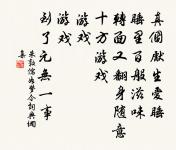 真個生愛睡
睡里百般滋味
轉面又翻身隨意
十方游戲
游戲
游戲
到了元無一事
朱敦儒如夢令詞典網
集